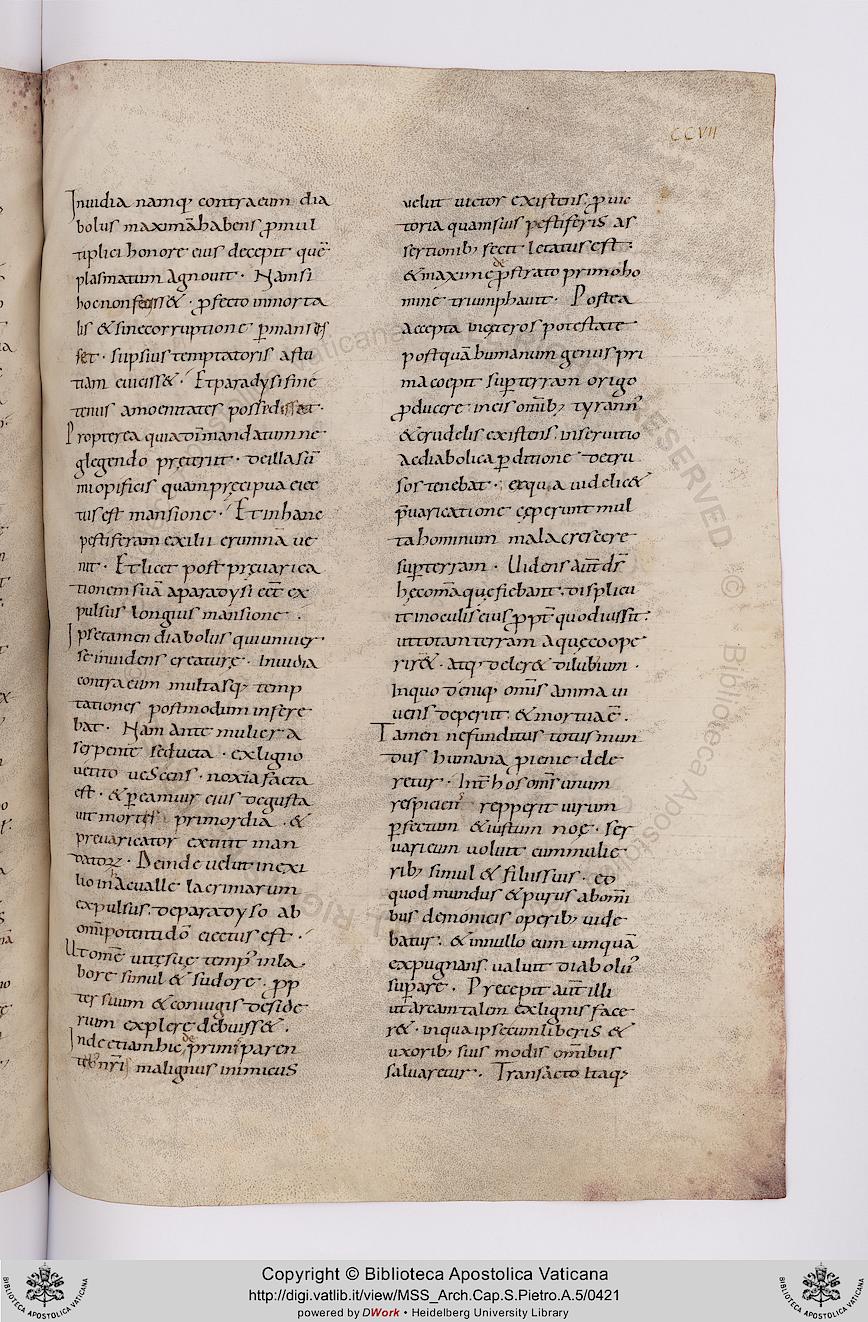 CCVII
Inuidia namq; contra eum dia
bolus maximā habens ꝓ mul
tiplici honore eius decepit quē
plasmatum agnouit · Nam si
hoc non fecisset · ꝓfecto inmorta
lis & sine corruptione ꝑmansis
set · sup sius temptatoris astu
tiam euicisset · Et paradysi sine
tenus amoenitates possedisset ·
Propterea quia dni mandatum ne
glegendo pręteriit · de illa sū
mi opificis quam pręcipua eiec
tus est mansione · Et in hanc
pestiferam exilii erumnā ue
nit · Et licet post pręuarica
tionem suā a paradysi eēt ex
pulsus longius mansione ·
Ipse tamen diabolus qui uniuer
se inuidens creaturę · Inuidia
contra eum multasq; temp
tationes postmodum insere
bat · Nam ante mulier a
serpente seducta · ex ligno
uetito uescens · noxia facta
est · & ꝑ eam uir eius degusta
uit mortis primordia · &
preuaricator extitit man
datorꝝ · Deinde uelut in exi
lio in hac ualle lacrimarum
expulsus de paradyso ab
omīpotenti dō eiectus est ·
bore simul & sudore · ꝓp
ter suum & coniugis deside
rum explere debuiss& ·
Inde etiam hic de primi paren
tes nr̄i malignus inimicus
uelut uictor existens · ꝓ uic
toria quam suis pestiferis as
sertionib; fecit letatus est ·
& maxime de ꝓstrato primo ho
mine triumphauit · Postea
accepta in cęteros potestate
postquā humanum genus pri
ma coepit suꝑ terram origo
ꝓducere in eis omīb; tyrann'
& crudelis existens · in seruitio
ac diabolica ꝑditione detru
sos tenebat · et quia uidelic&
p̄uaricatione cęperunt mul
ta hominum mala crescere
suꝑ terram · Uidens aut̄ ds̄
hęc omā quę fiebant · displicu
it in oculis eius ꝓpt̄ quod iussit
ut totam terram aquę coope
rir& · atq; deler& dilubium ·
In quo deniq; omīs anima ui
uens deperiit & mortua ē ·
Tamen ne funditus totus mun
dus humana pˡene dele
retur · Int̄ hos omīs unum
respiciens repperit uirum
ꝑfectum & iustum noę · ser
uari eum uoluit cum mulie
rib; simul & filiis suis · eo
quod mundus & purus ab omī
bus demonicis operib; uide
batur · & in nullo eum umquā
expugnans ualuit diabolus
suꝑare · Precepit aut̄ illi
ut arcam talem ex lignis face
r& · in qua ipse cum liberis &
uxorib; suis modis omībus
saluaretur · Transacto Itaq;
Copyright © Biblioteca Apostolica Vaticana
http://digi.vatlib.it/view/MSS_Arch.Cap.S.Pietro.A.5/0421
powered by DWork • Heidelberg University Library